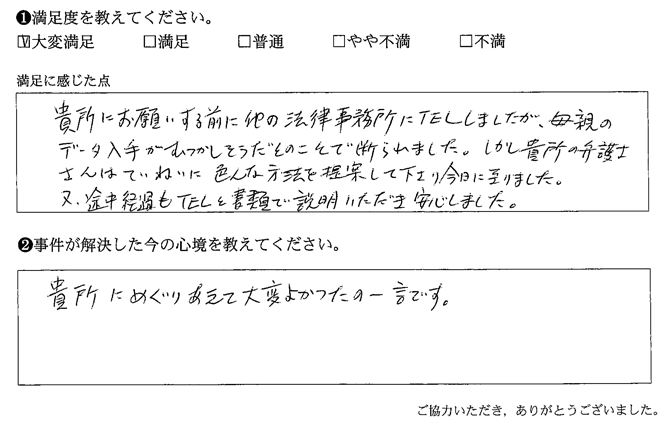 ❶満足度を教えてください。
☑大変満足 □満足 □普通 □やや不満 □不満
満足に感じた点
貴所にお願いする前に他の法律事務所にTELしましたが、母親の
データ入手がむつかしそうだとのことで断られました。しかし貴所の弁護士
さんはていねいに色んな方法を提案して下さり今日に至りました。
又、途中経過もTELと書類で説明いただき安心しました。
❷事件が解決した今の心境を教えてください。
貴所にめぐりあえて大変よかったの一言です。
ご協力いただき，ありがとうございました。